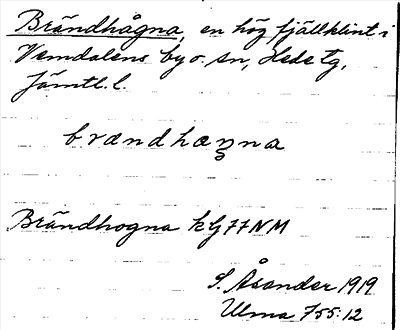 Brändhågna, en hög fjällklint i
Vemdalens by o. sn, Hede tg,
Jämtl. l.
brandhaŋna
Brändhogna kG77NM
S. Åsander 1919
Ulma 755:12